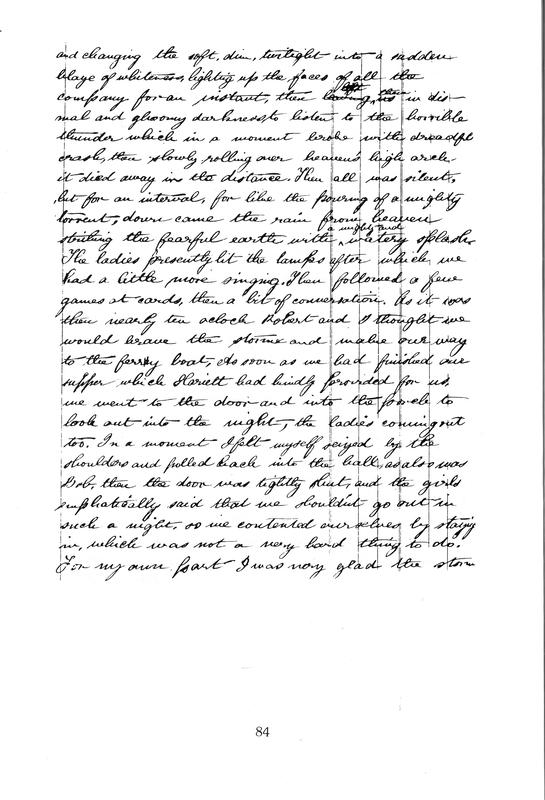 and changing the soft, dim, twilight into a sudden
blaze of whiteness, lighting up the faces of all the
company for an instant, then left them in dis-
mal and gloomy darkness, to listen to the horrible
thunder which in a moment broke with dreadful
crash, then slowly rolling over heavens high arch
it died away in the distance. Then all was silent,
but for an interval, for like the pouring of a mighty
torrent, down came the rain from heaven
striking the fearful earth with a mighty and watery splash.
The ladies presently lit the lamps after which we
had a little more singing. Then followed a few
games at cards, then a bit of conversation. As it was
then nearly ten oclock Robert and I thought we
would brave the storm and make our way
to the ferry boat, As soon as we had finished our
supper which Hariett had kindly provided for us,
we went to the door and into the porch to
look out into the night, the ladies coming out
too. In a moment I felt myself seized by the
shoulders and pulled back into the hall, as also was
Bob, then the door was tightly shut, and the girls
emphatically said that we shouldnt go out in
such a night, so we contented ourselves by staying
in, which was not a very hard thing to do.
For my own part I was very glad the storm
84